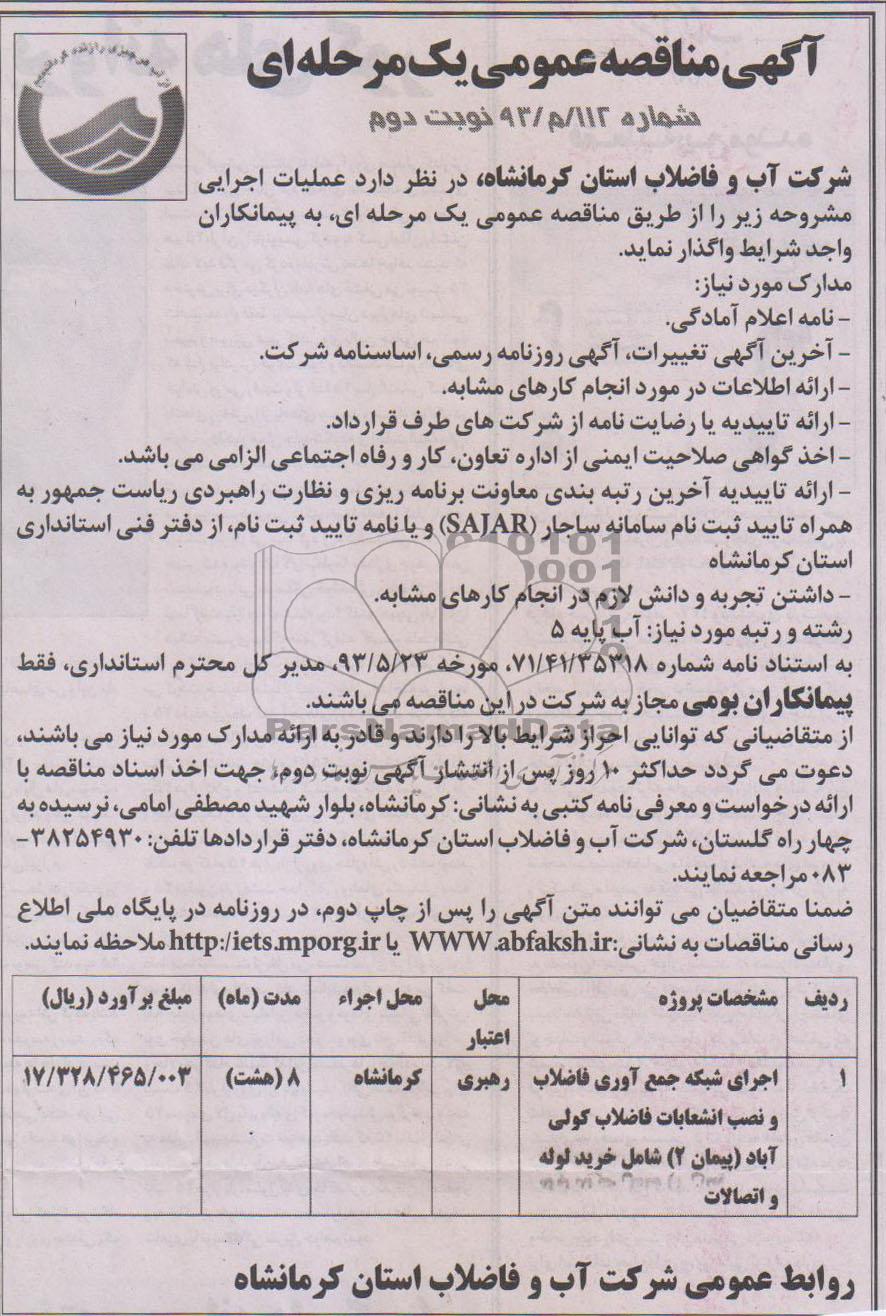 آگهی مناقصه عمومی یک مرحله‌ای
شماره ۱۱۲/م/۹۳ نوبت دوم
شرکت آب و فاضلاب استان کرمانشاه، در نظر دارد عملیات اجرایی
مشروحه زیر را از طریق مناقصه عمومی یک مرحله ای، به پیمانکاران
واجد شرایط واگذار نماید.
مدارک مورد نیاز:
- نامه اعلام آمادگی.
- آخرین آگهی تغییرات، آگهی روزنامه رسمی، اساسنامه شرکت.
- ارائه اطلاعات در مورد انجام کارهای مشابه.
- ارائه تاییدیه یا رضایت نامه از شرکت های طرف قرارداد.
- اخذ گواهی صلاحیت ایمنی از اداره تعاون، کار و رفاه اجتماعی الزامی می باشد.
- ارائه تاییدیه آخرین رتبه بندی معاونت برنامه ریزی و نظارت راهبردی ریاست جمهور به
همراه تایید ثبت نام سامانه ساجار (SAJAR) و یا نامه تایید ثبت نام، از دفتر فنی استانداری
استان کرمانشاه
- داشتن تجربه و دانش لازم در انجام کارهای مشابه.
رشته و رتبه مورد نیاز: آب پایه ۵
به استناد نامه شماره ۷۱/۴۱/۳۵۳۱۸، مورخه ۹۳/۵/۲۳، مدیر کل محترم استانداری، فقط
پیمانکاران بومی مجاز به شرکت در این مناقصه می باشند.
ParsNamadData
از متقاضیانی که توانایی احراز شرایط بالا را دارند و قادر به ارائه مدارک مورد نیاز می باشند،
دعوت می گردد حداکثر ۱۰ روز پس از انتشار آگهی نوبت دوم، جهت اخذ اسناد مناقصه با
ارائه درخواست و معرفی نامه کتبی به نشانی: کرمانشاه، بلوار شهید مصطفی امامی، نرسیده به
چهار راه گلستان، شرکت آب و فاضلاب استان کرمانشاه، دفتر قراردادها تلفن: ۳۸۲۵۴۹۳۰-
۰۸۳ مراجعه نمایند.
ضمنا متقاضیان می توانند متن آگهی را پس از چاپ دوم، در روزنامه در پایگاه ملی اطلاع
رسانی مناقصات به نشانی: WWW.abfaksh.ir یا http:/iets.mporg.ir ملاحظه نمایند.
ردیف مشخصات پروژه محل اعتبار محل اجراء مدت (ماه) مبلغ برآورد (ریال)
۱ اجرای شبکه جمع آوری فاضلاب رهبری کرمانشاه ۸ (هشت) ۱۷/۳۲۸/۴۶۵/۰۰۳
و نصب انشعابات فاضلاب کولی
آباد (پیمان ۲) شامل خرید لوله
و اتصالات
روابط عمومی شرکت آب و فاضلاب استان کرمانشاه